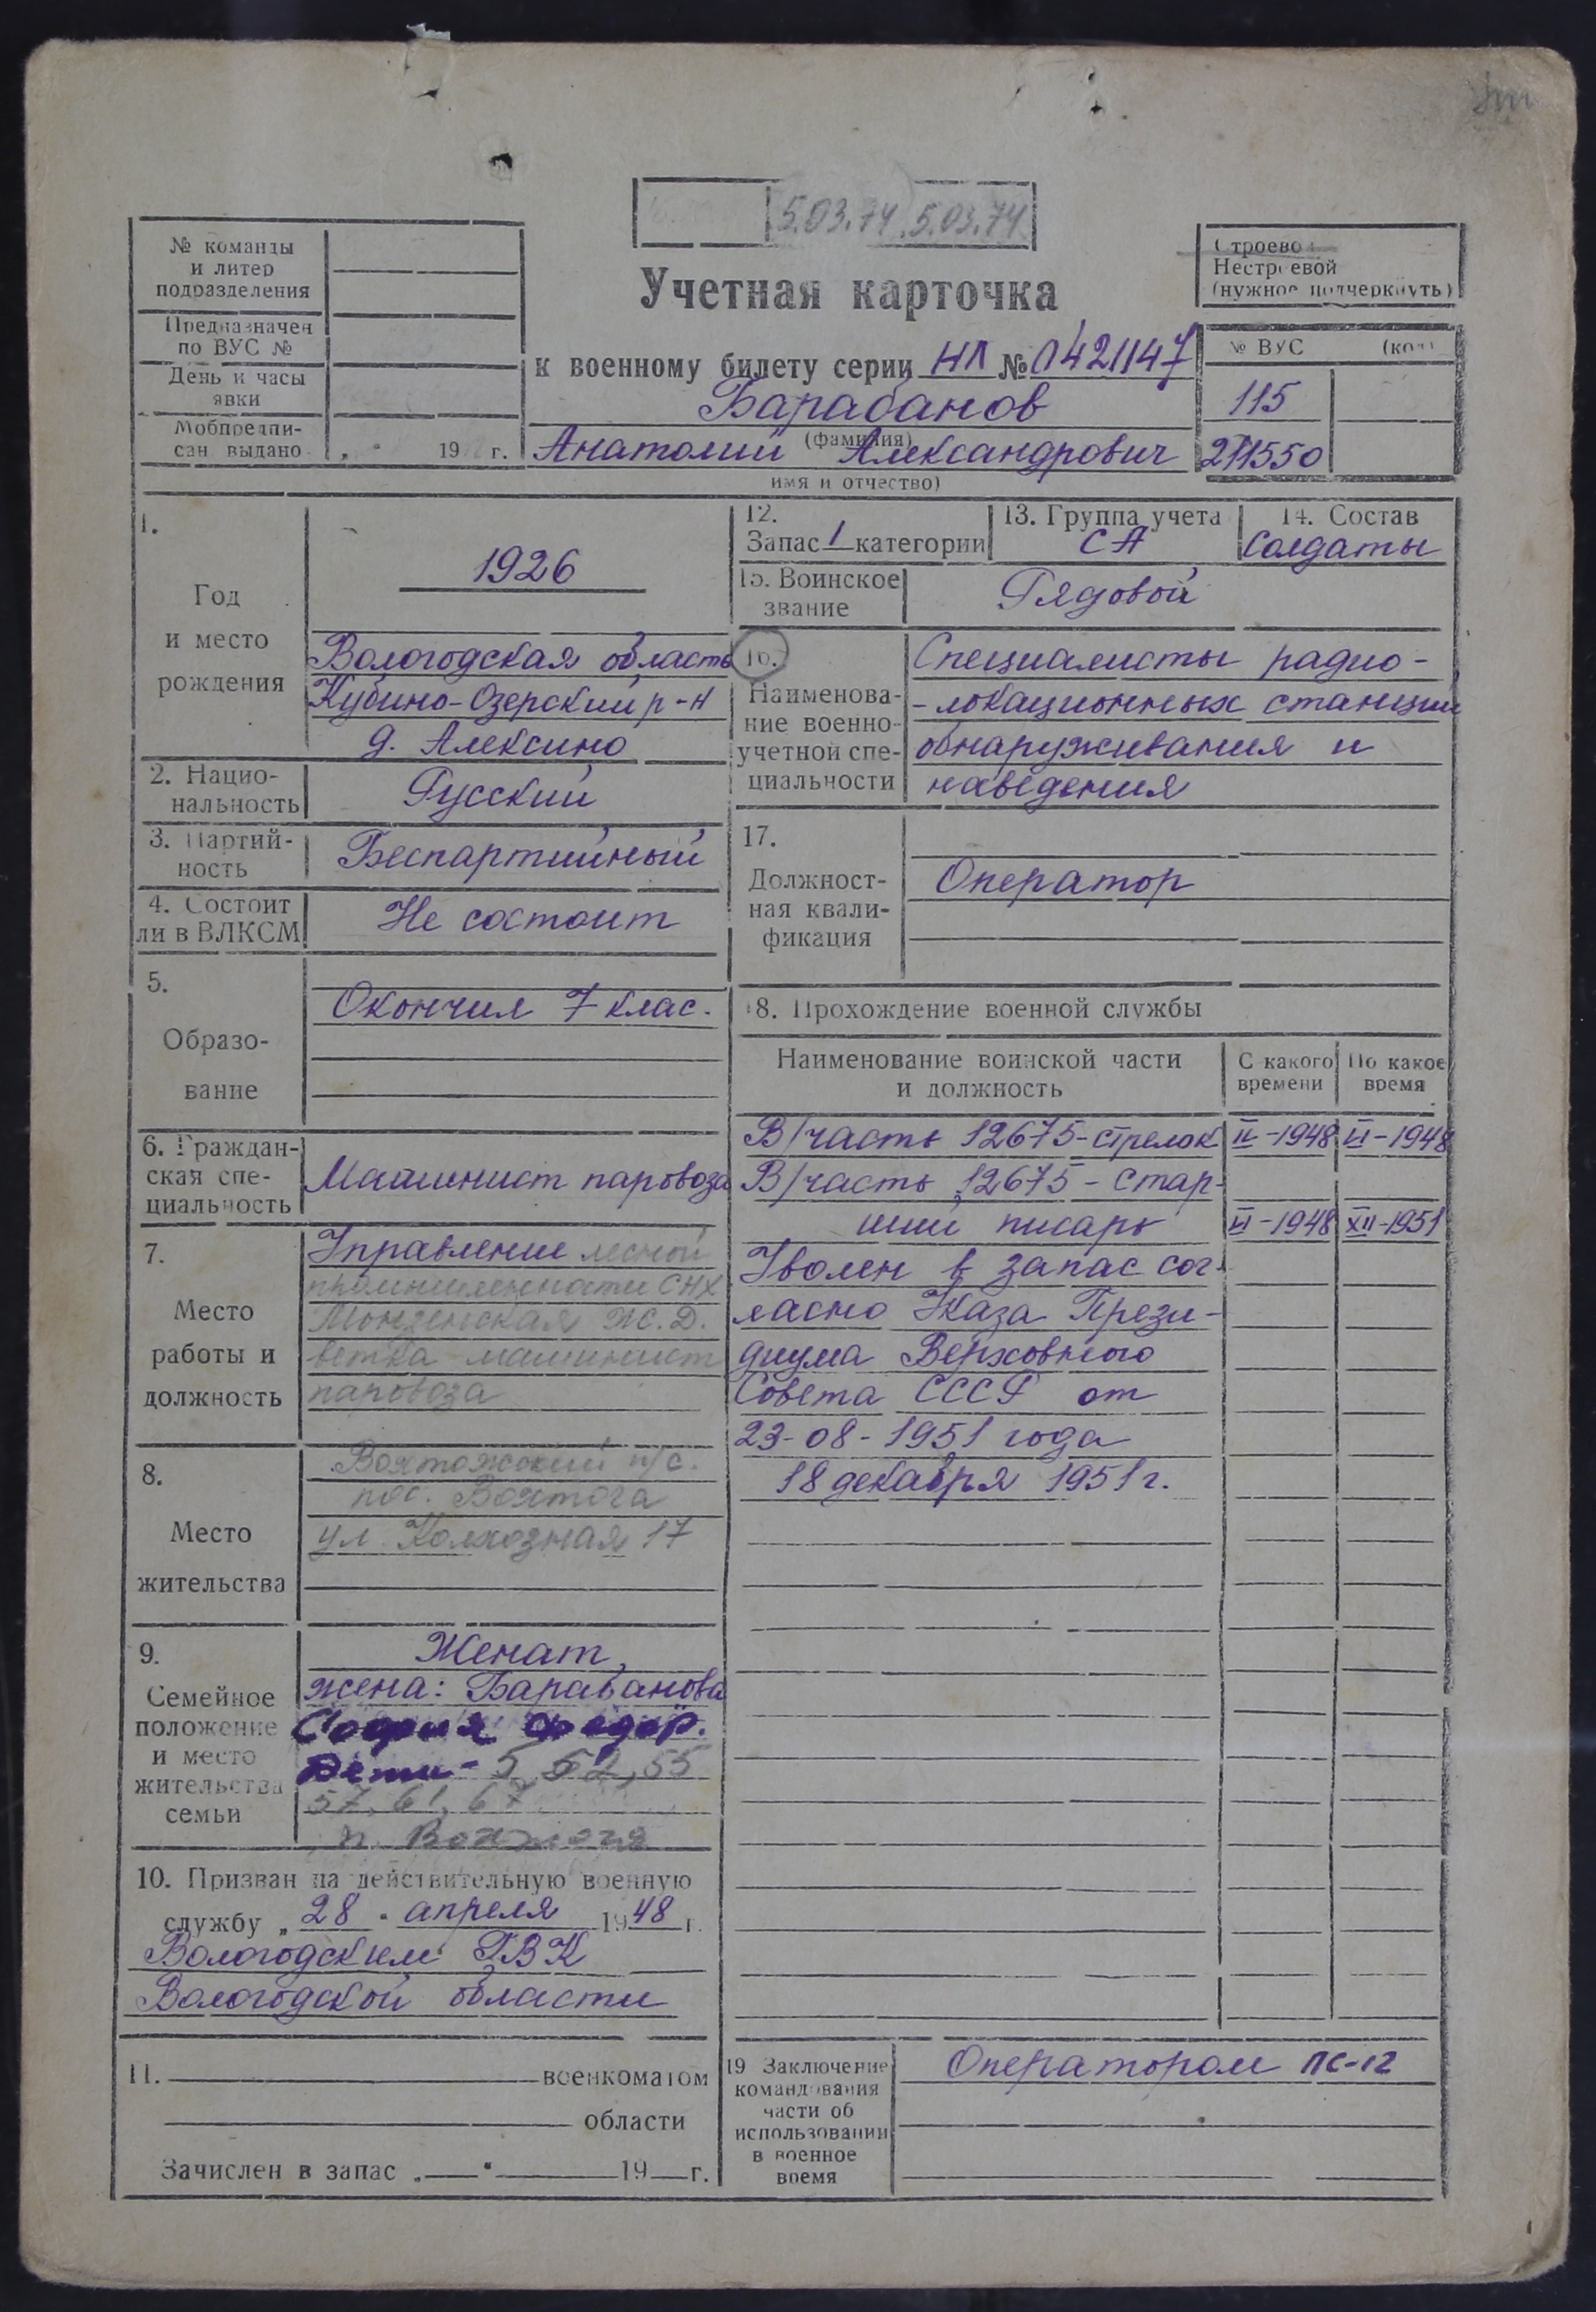 5.03.74 5.03.74
№ команды
и литер
подразделения
Предназначен
по ВУС №
День и часы
явки
Мобпредпи-
сан. выдано „ " 19 г.
Учетная карточка
к военному билету серии НЛ № 0421147
Барабанов
(фамилия)
Анатолий Александрович
имя и отчество)
Строевой
Нестроевой
(нужное подчеркнуть)
№ ВУС (код)
115
211550
1.
Год
и место
рождения
1926
Вологодская область
Кубино-Озерский р-н
д. Алексино
2. Нацио-
нальность
Русский
3. Партий-
ность
Беспартийный
4. Состоит
ли в ВЛКСМ
Не состоит
5.
Образо-
вание
Окончил 7 клас.
6. Граждан-
ская спе-
циальность
Машинист паровоза
7.
Место
работы и
должность
Управление лесной
промышленности СНХ
Монзенская Ж.Д.
ветка машинист
паровоза
8.
Место
жительства
Вохтожский п/с.
пос. Вохтога
ул. Колхозная 17
9.
Семейное
положение
и место
жительства
семьи
Женат,
жена: Барабанова
София Федор.
Дети - 5 52, 55
57, 61, 67
п. Вохтога
10. Призван на действительную военную
службу „ 28 " апреля 1948 г.
Вологодским ГВК
Вологодской области
11. военкоматом
области
Зачислен в запас „ " 19 г.
12.
Запас 1 категории
13. Группа учета
СА
14. Состав
Солдаты
15. Воинское
звание
Рядовой
16.
Наименова-
ние военно-
учетной спе-
циальности
Специалисты радио-
-локационных станций
обнаруживания и
наведения
17.
Должност-
ная квали-
фикация
Оператор
18. Прохождение военной службы
Наименование воинской части
и должность
С какого
времени
По какое
время
В/часть 12675-стрелок II-1948 VI-1948
В/часть 12675 - Стар-
ший писарь VI-1948 XII-1951
Уволен в запас сог-
ласно Указа Прези-
диума Верховного
Совета СССР от
23-08-1951 года
18 декабря 1951 г.
19 Заключение
командования
части об
использовании
в военное
время
Оператором ПС-12